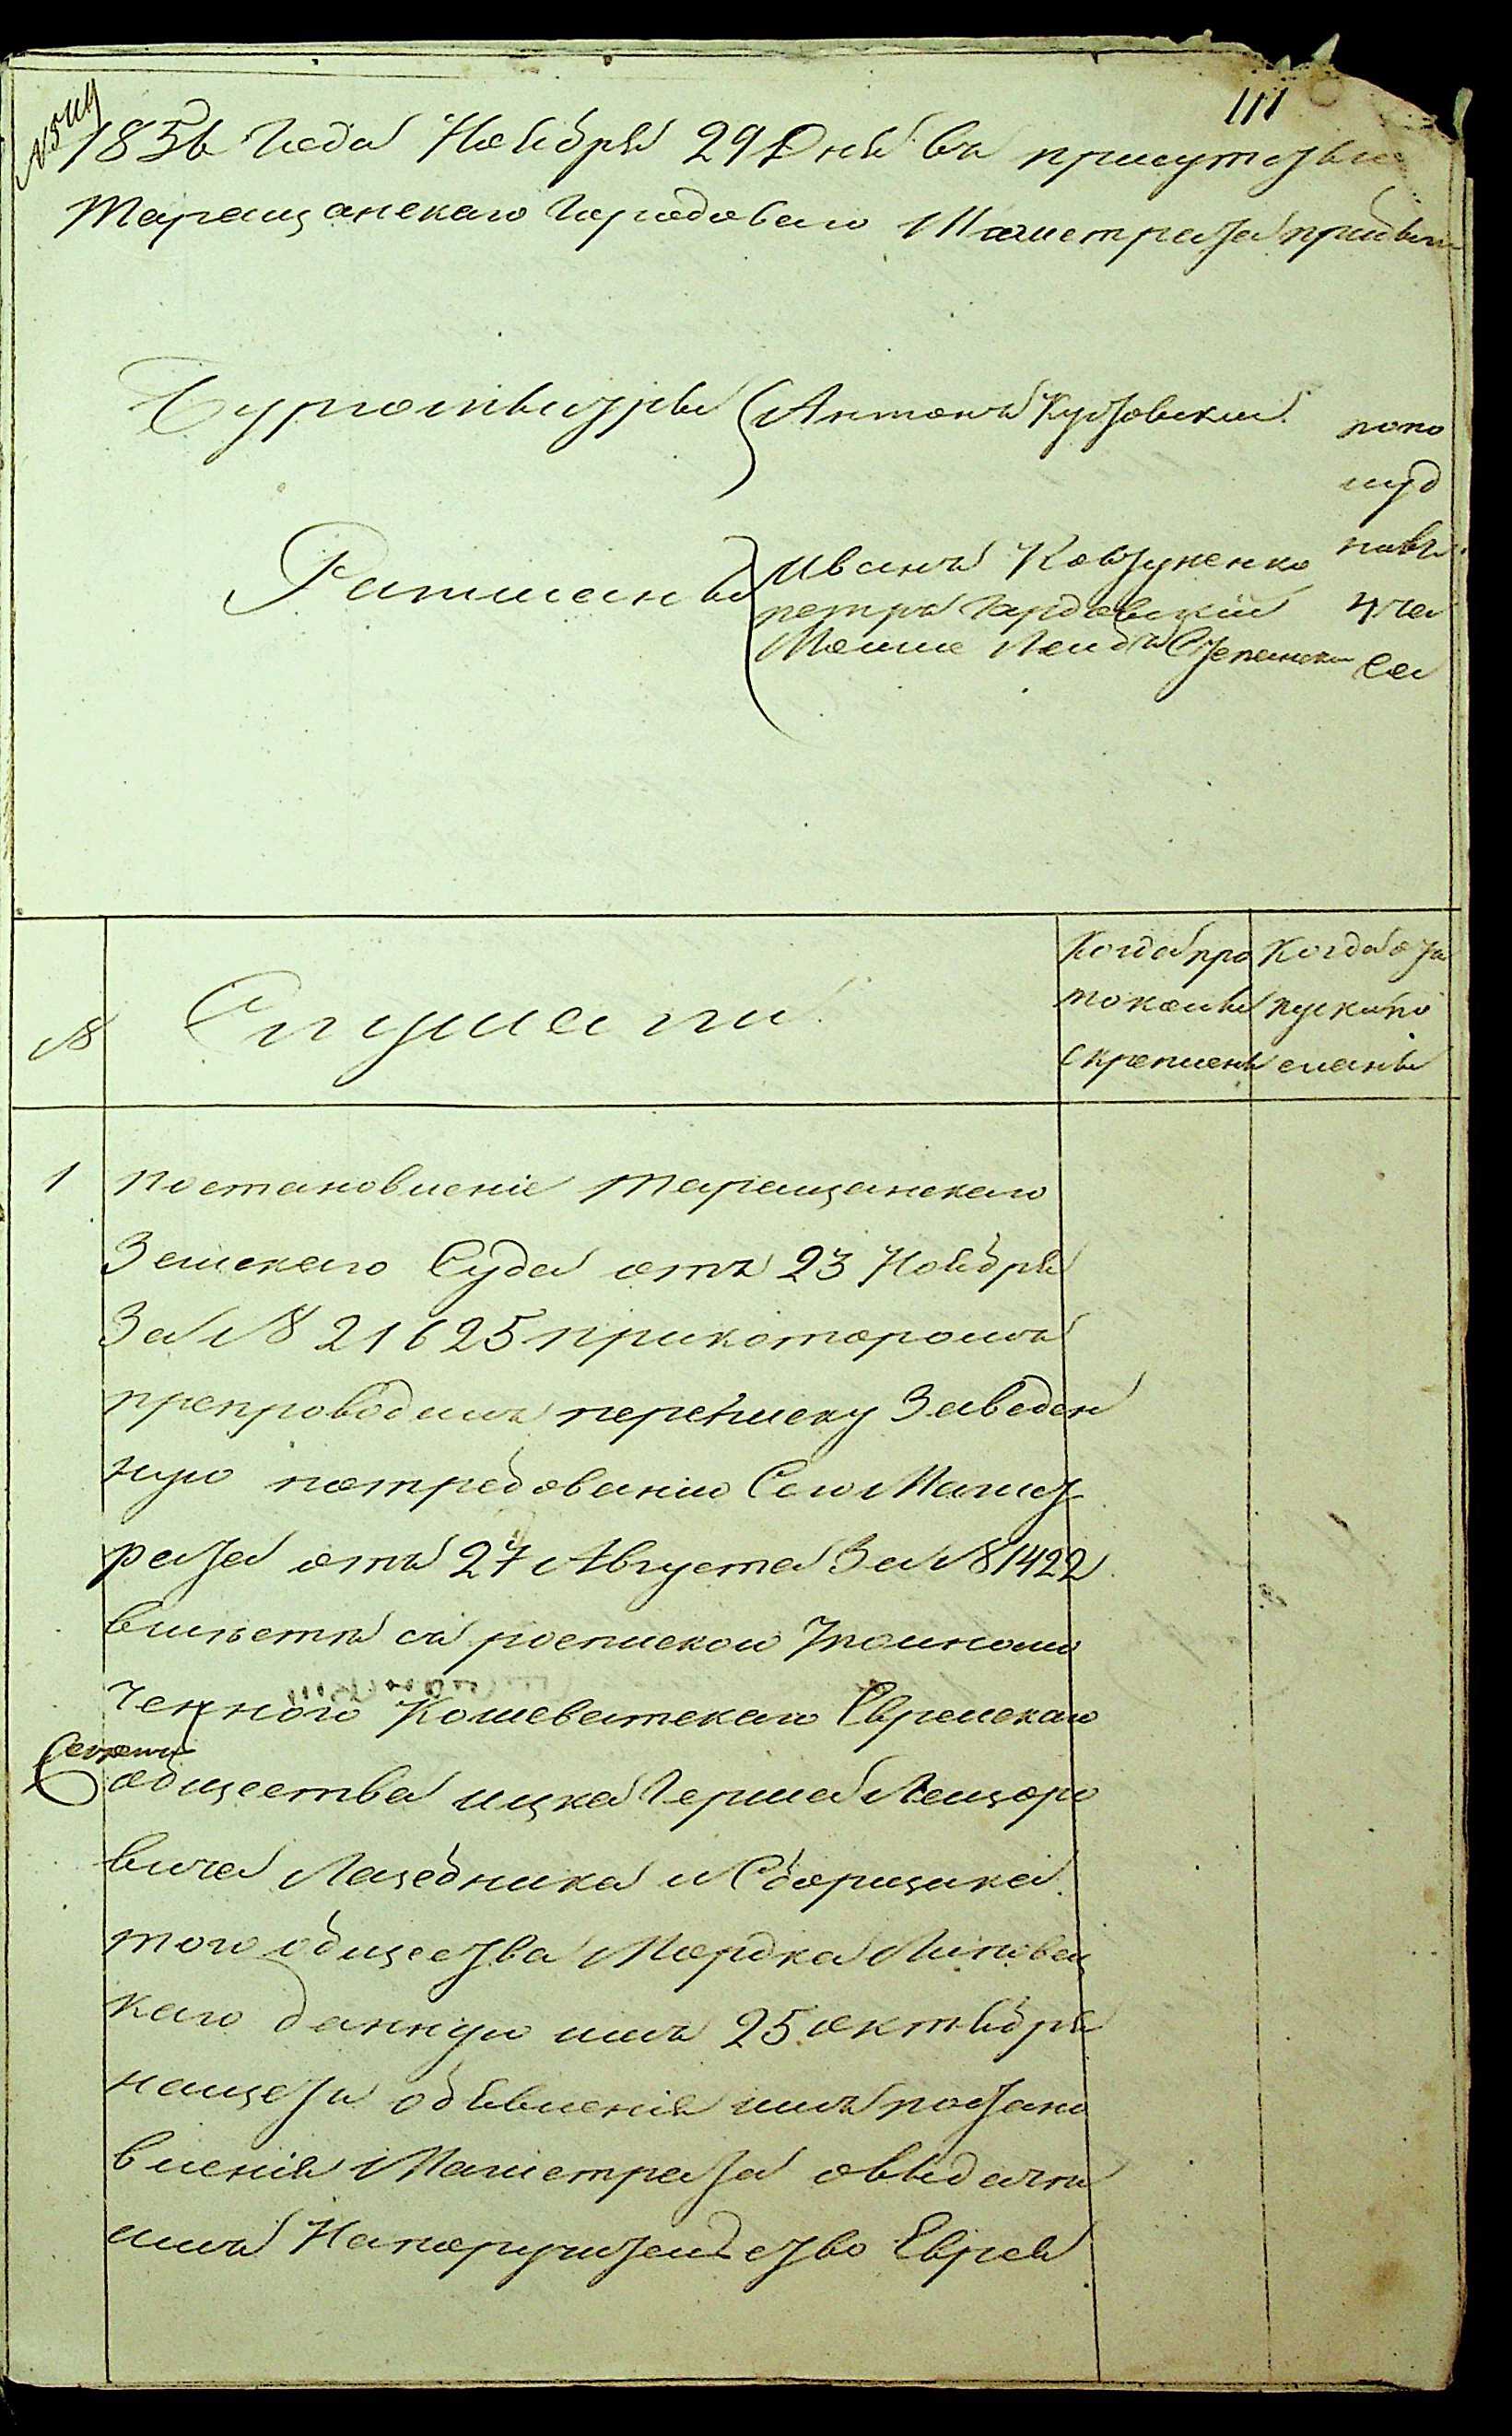 111
1856 Года Ноября 29 Дня Въ присутствіи
Таращанскаго Городоваго Магистрата прибыли
Бургомистры Антонъ Кутовскій
попо
луд
Ратманы
Иванъ Ковтуненко
Петръ Гордовскій
Мошие Лейбъ
новъ
4 ча
са
№ Слушали Когда про Когда отъ
токолы пуски по
скреплены сланы
1 Постановленіе Таращанскаго
Земскаго Суда отъ 23 Ноября
За № 21625 прикоторомъ
препроводилъ перепиеку Заведен
ную потребованію Сего Магист
рата отъ 27 Августа За № 1422
вмѣстѣ съ роспискою Уполномо
ченного Кошеватскаго Еврейскаго
общества Ицка Герша Лейзоро
вича Лацебника и Сборщика
того общества Мордка Липовец
каго данную имъ 25 октября
нащетъ объявленія имъ постано
вленія Магистрата овыдачи
имъ Напоручительство Еврея